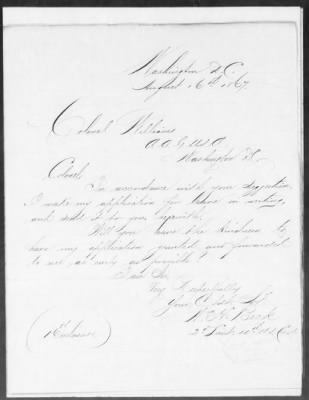 Washington D.C.
August 16th 1867.
Colonel Williams
A.A.G. U.S.A.
Washington D.C.
Colonel,
In accordance with your suggestion,
I make my application for in writing,
and send it to you, 
Will you have the kindness to
have my application granted and forwarded
to me, as early as possible?
I am Sir,
Very Respectfully
Your Obdt Svt
W. H. Beck
2d Lieut 10th U.S. Cav
(1 Enclosure)